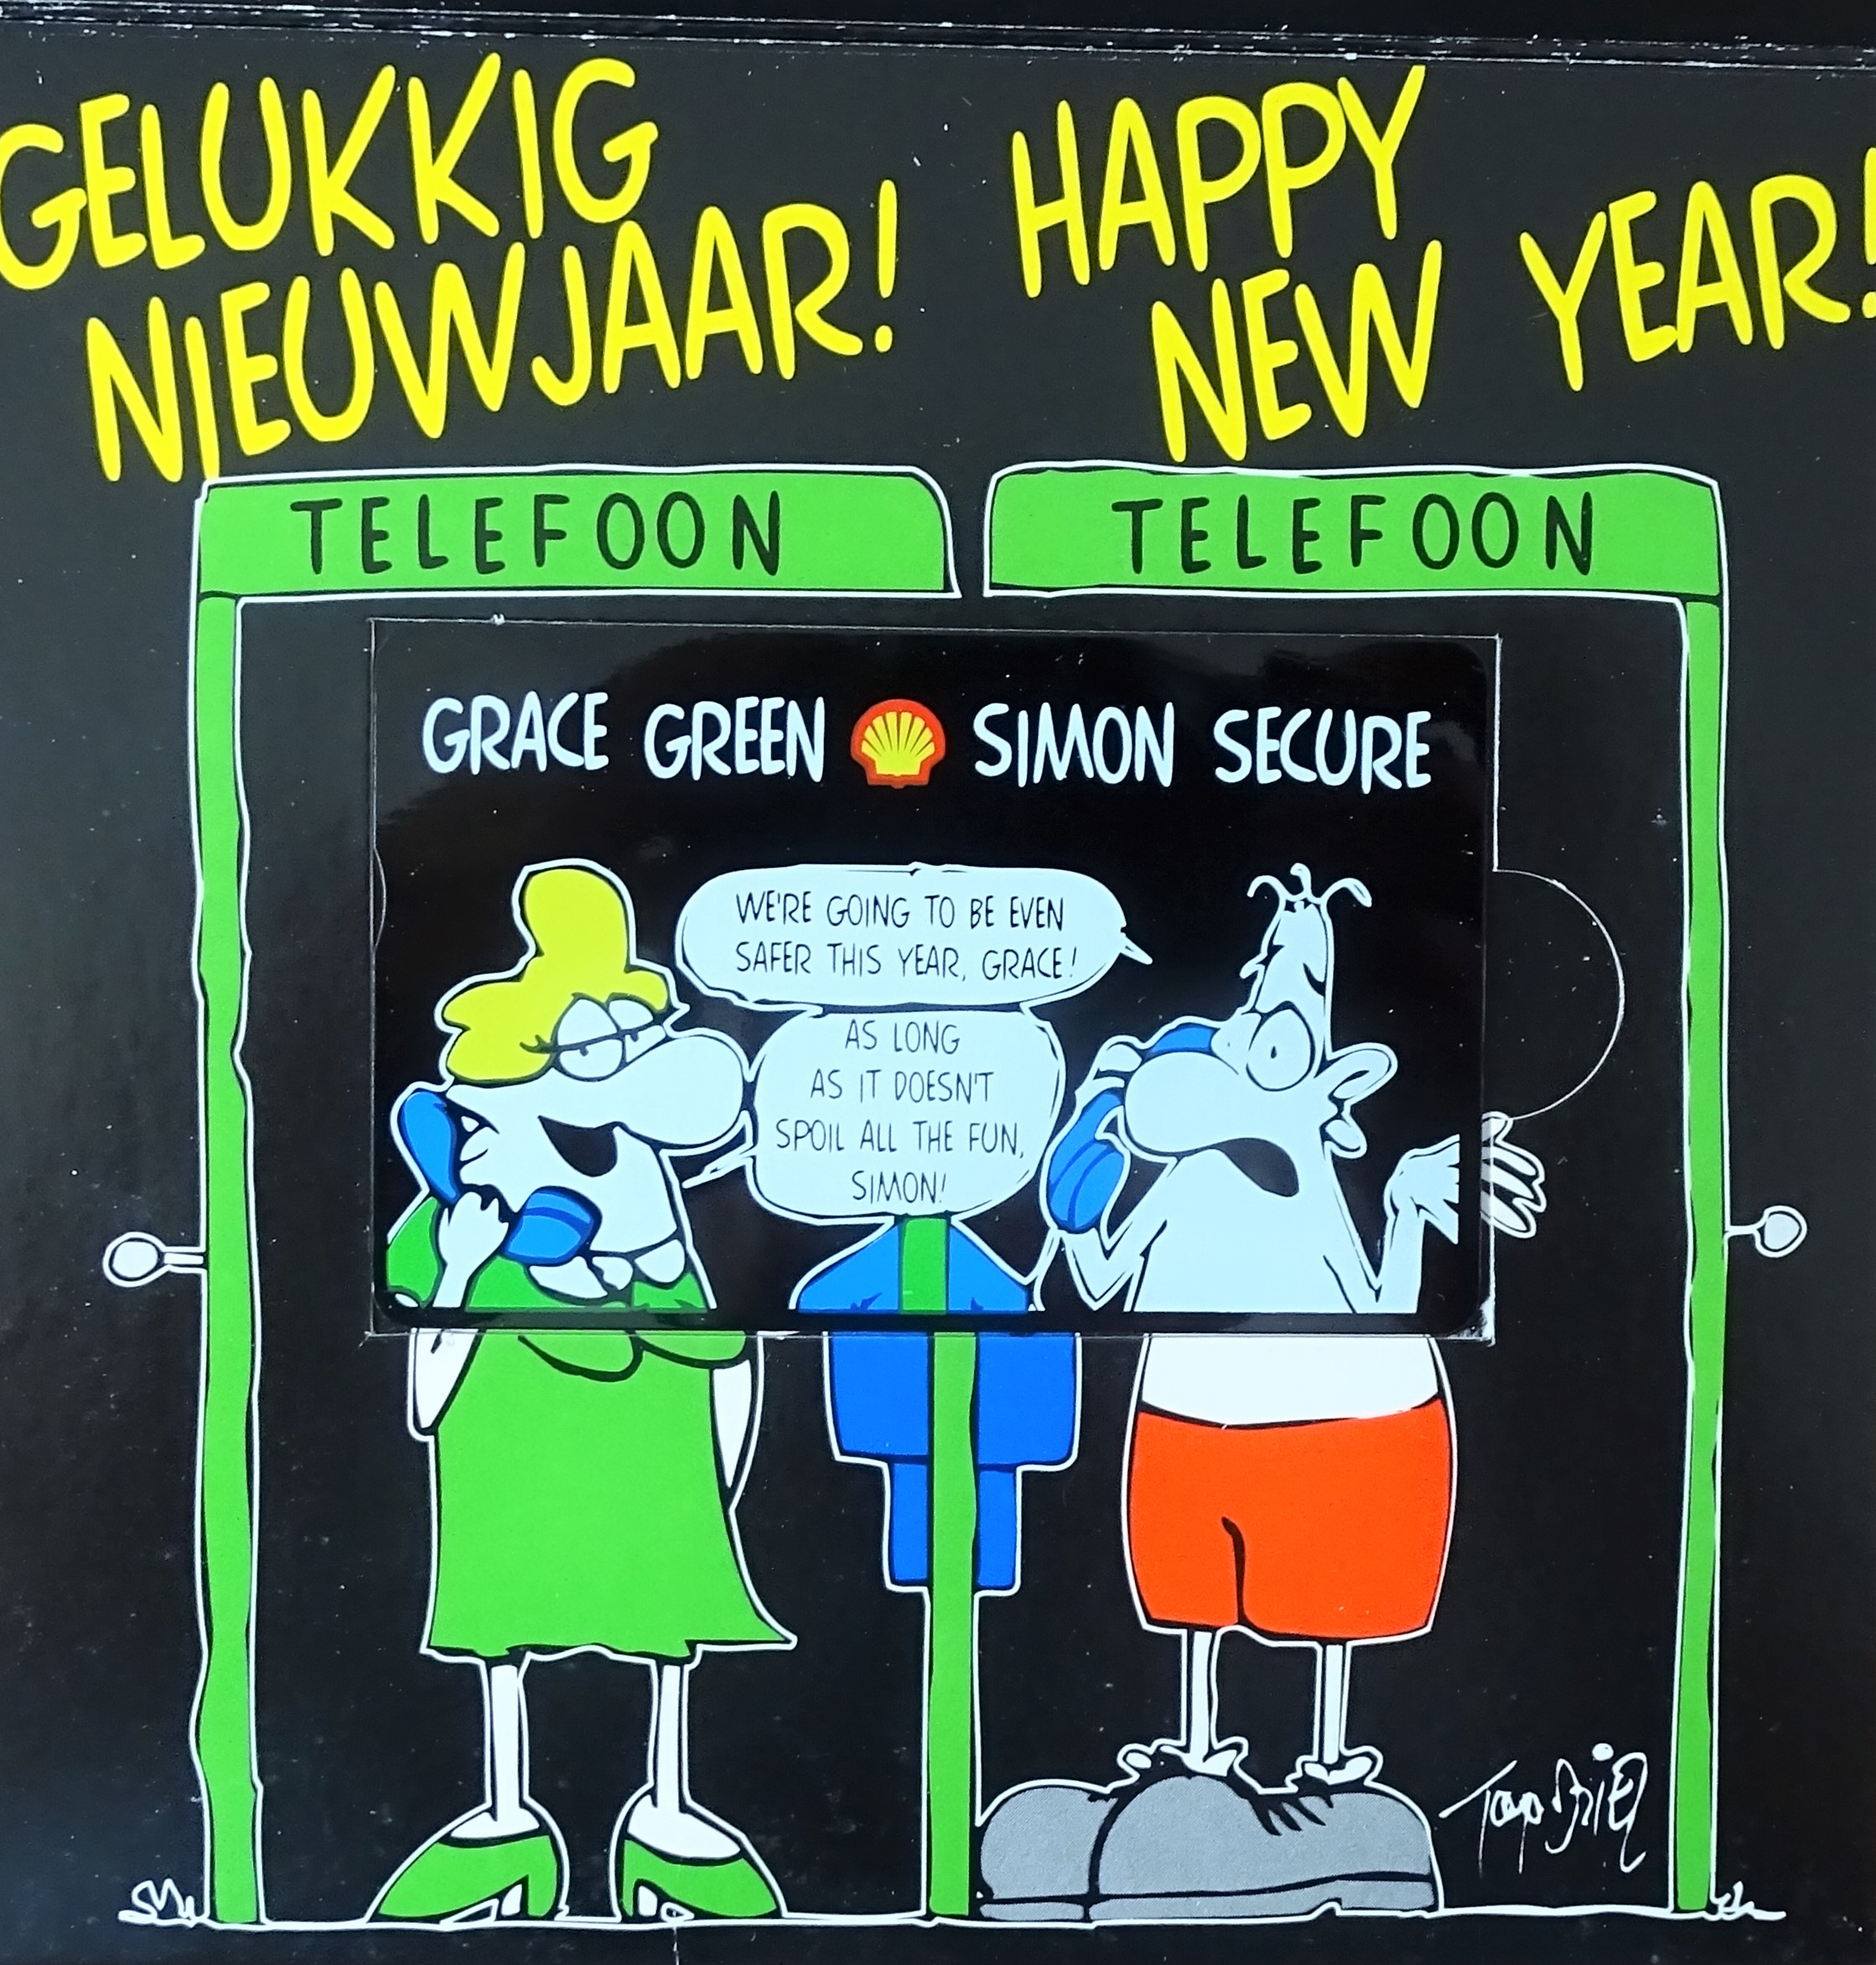 GELUKKIG
NIEUWJAAR!
HAPPY
NEW YEAR!
TELEFOON
TELEFOON
GRACE GREEN
SIMON SECURE
WE'RE GOING TO BE EVEN
SAFER THIS YEAR, GRACE!
AS LONG
AS IT DOESN'T
SPOIL ALL THE FUN,
SIMON!